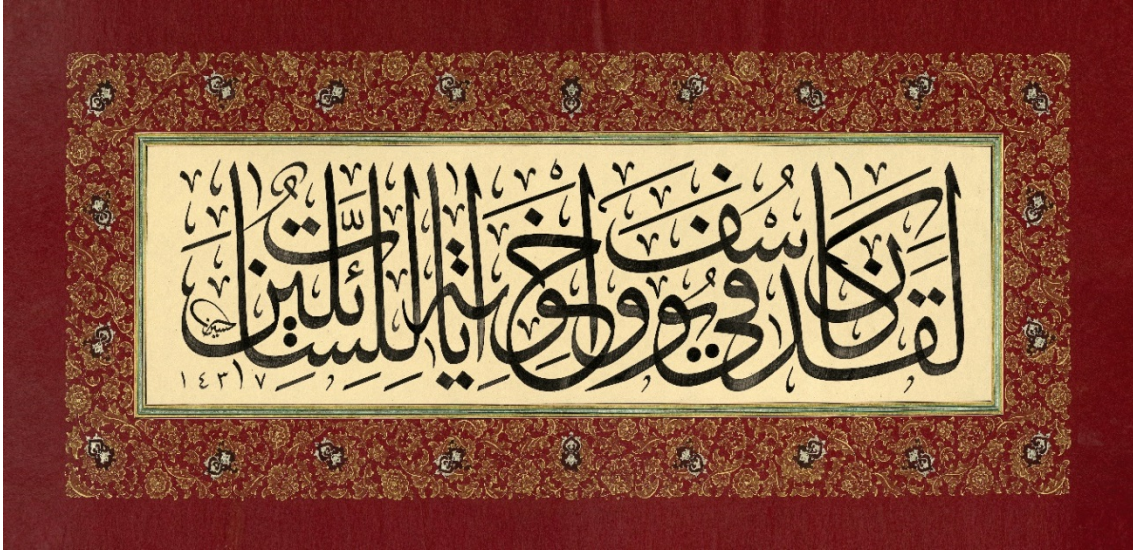 لَقَدْ كَانَ فِي يُوسُفَ وَإِخْوَتِهِ آيَاتٌ لِلسَّائِلِينَ
حسين
١٤٣٧